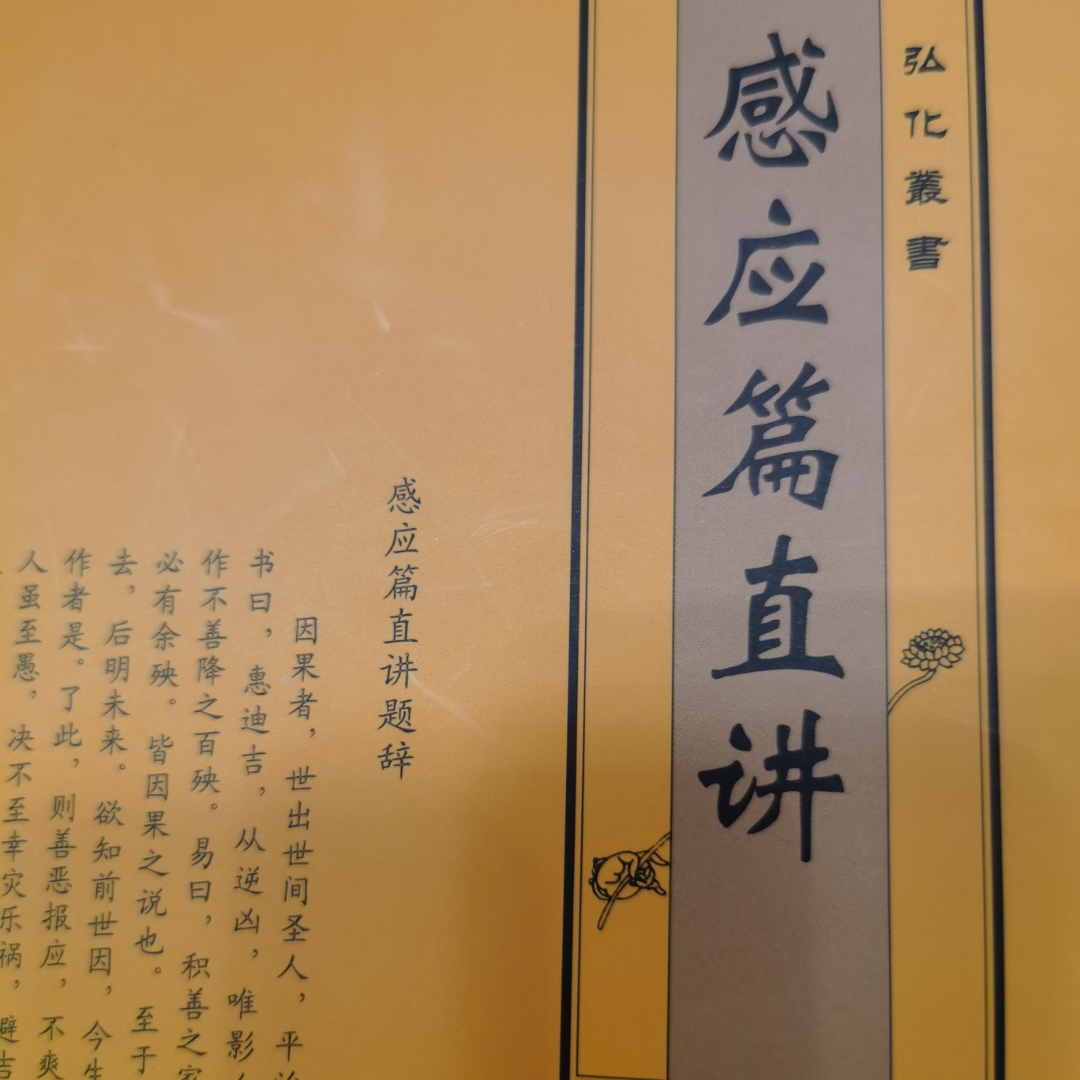 弘化叢書
感应篇直讲
感应篇直讲题辞
因果者，世出世间圣人，平
书曰，惠迪吉，从逆凶，唯影
作不善降之百殃。易曰，积善之家
必有余殃。皆因果之说也。至于
去，后明未来。欲知前世因，今生
作者是。了此，则善恶报应，不爽
人虽至愚，决不至幸灾乐祸，避吉